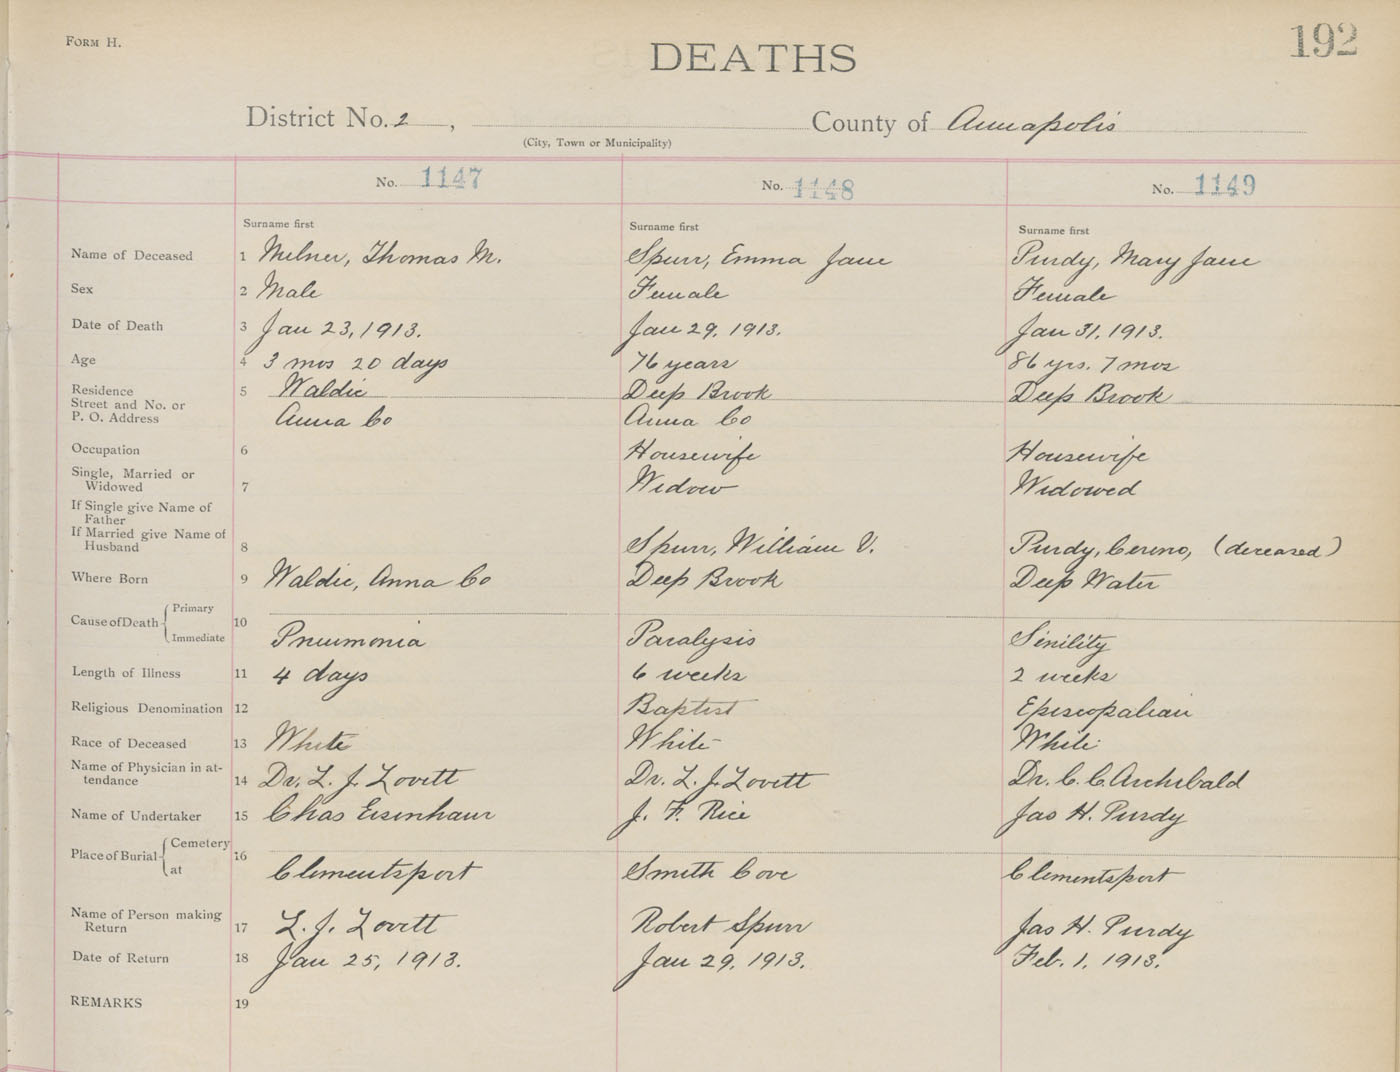 FORM H.
192
DEATHS
District No. 2 , County of Annapolis
(City, Town or Municipality)
No. 1147 No. 1148 No. 1149
Surname first Surname first Surname first
Name of Deceased 1 Milner, Thomas M. Spurr, Emma Jane Purdy, Mary Jane
Sex 2 Male Female Female
Date of Death 3 Jan 23, 1913. Jan 29, 1913. Jan 31, 1913.
Age 4 3 mos 20 days 76 years 86 yrs. 7 mos
Residence 5 Waldic Deep Brook Deep Brook
Street and No. or
P. O. Address Anna Co Anna Co
Occupation 6 Housewife Housewife
Single, Married or
Widowed 7 Widow Widowed
If Single give Name of
Father
If Married give Name of
Husband 8 Spurr, William V. Purdy, Cereno, (deceased)
Where Born 9 Waldic, Anna Co Deep Brook Deep Water
Cause of Death Primary 10
Immediate Pneumonia Paralysis Sinility
Length of Illness 11 4 days 6 weeks 2 weeks
Religious Denomination 12 Baptist Episcopalian
Race of Deceased 13 White White White
Name of Physician in at-
tendance 14 Dr. L. J. Lovett Dr. L. J. Lovett Dr. C. C. Archibald
Name of Undertaker 15 Chas Eisenhaur J. F. Rice Jas H. Purdy
Place of Burial Cemetery 16
at Clementsport Smith Cove Clementsport
Name of Person making
Return 17 L. J. Lovett Robert Spurr Jas H. Purdy
Date of Return 18 Jan 25, 1913. Jan 29, 1913. Feb. 1, 1913.
REMARKS 19